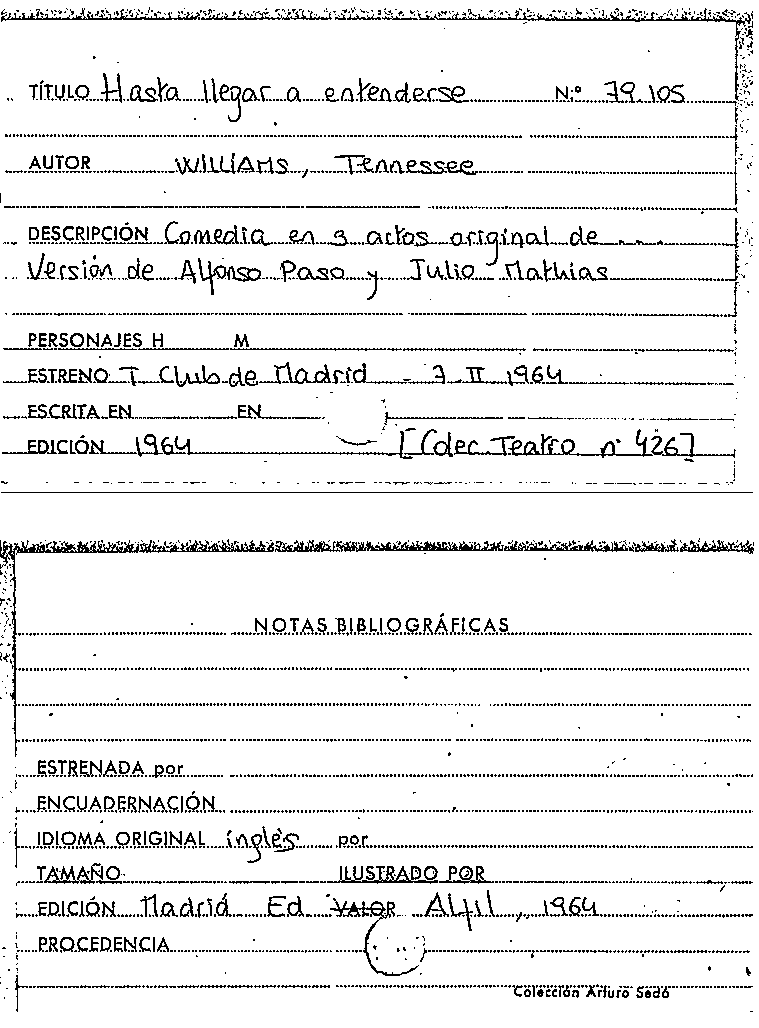 TÍTULO Hasta llegar a entenderse N.º 79.105
AUTOR WILLIAMS, Tennessee
DESCRIPCIÓN Comedia en 3 actos original de ...
Versión de Alfonso Paso y Julio Mathias
PERSONAJES H M
ESTRENO T. Club de Madrid - 7 II 1964
ESCRITA EN EN
EDICIÓN 1964 [Colec. Teatro nº 426]
NOTAS BIBLIOGRÁFICAS
ESTRENADA por
ENCUADERNACIÓN
IDIOMA ORIGINAL inglés por
TAMAÑO ILUSTRADO POR
EDICIÓN Madrid Ed VALOR Alfil, 1964
PROCEDENCIA
Colección Arturo Sedó